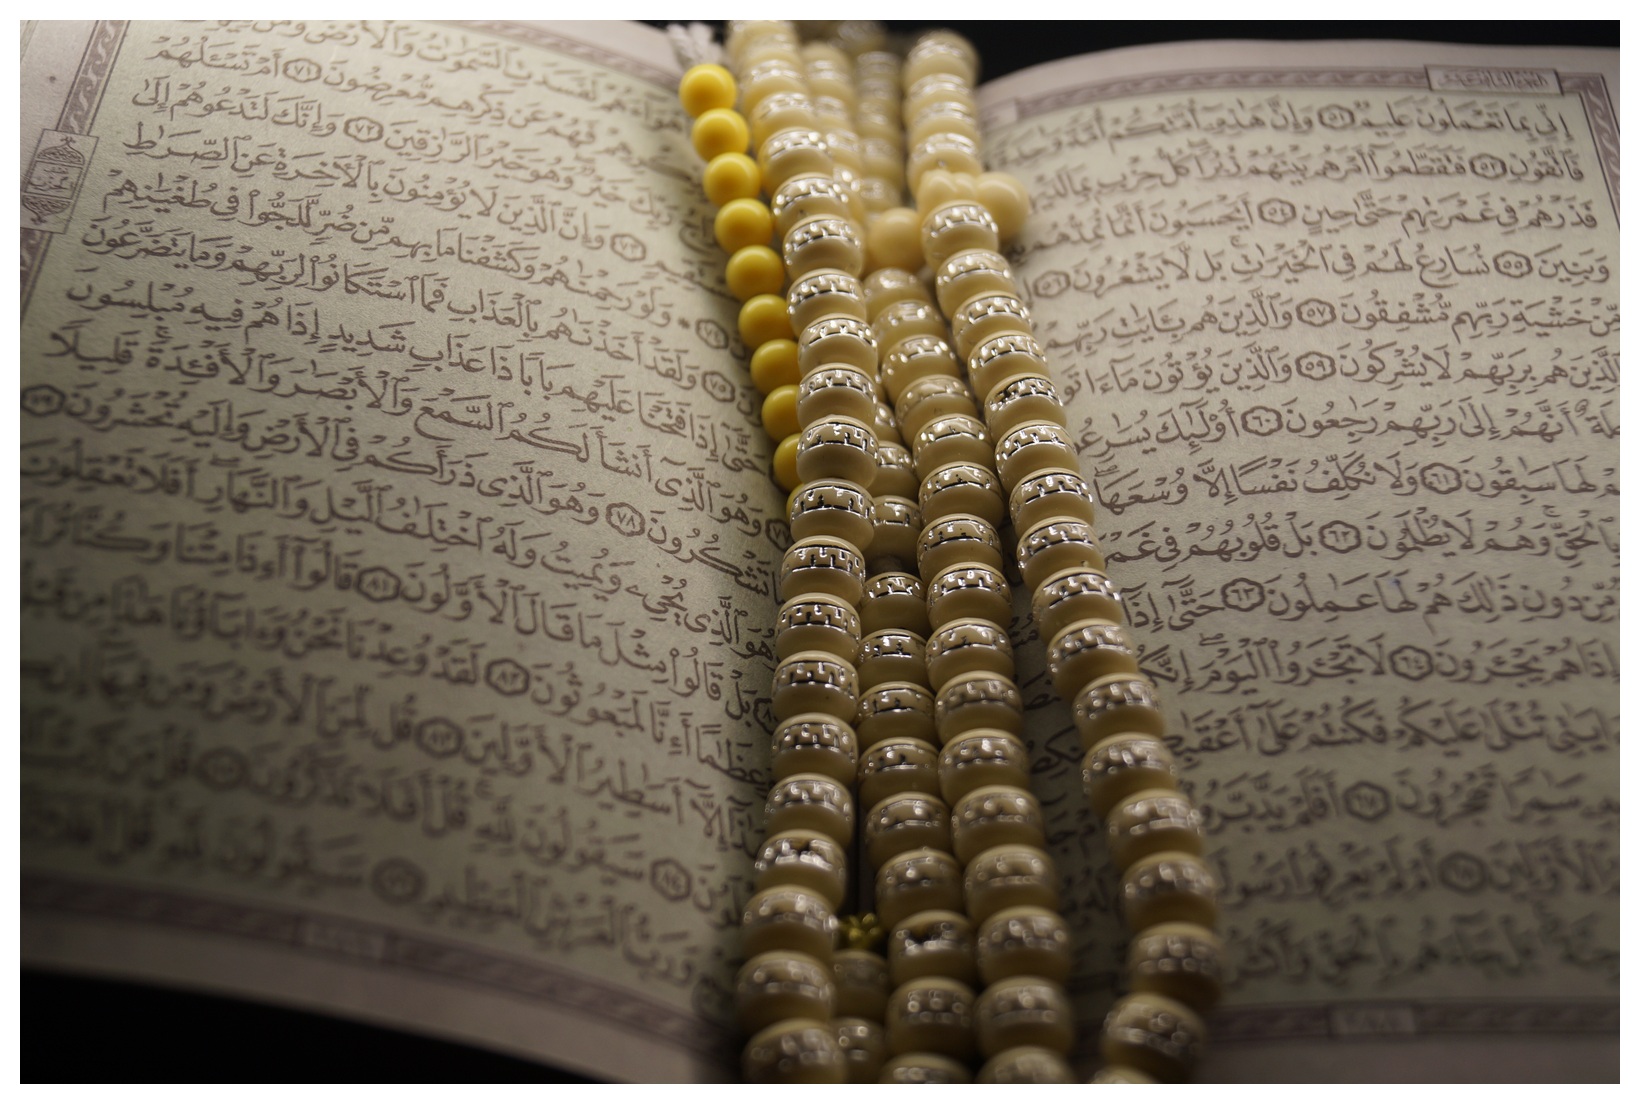 إِنِّى بِمَا تَعْمَلُونَ عَلِيمٌ ٥١ وَإِنَّ هَٰذِهِۦٓ أُمَّتُكُمْ أُمَّةً
فَٱتَّقُونِ ٥٢ فَتَقَطَّعُوٓا۟ أَمْرَهُم بَيْنَهُمْ زُبُرًا كُلُّ حِزْبٍۭ بِمَا
فَذَرْهُمْ فِى غَمْرَتِهِمْ حَتَّىٰ حِينٍ ٥٤ أَيَحْسَبُونَ أَنَّمَا نُمِدُّهُم
وَبَنِينَ ٥٥ نُسَارِعُ لَهُمْ فِى ٱلْخَيْرَٰتِ بَل لَّا يَشْعُرُونَ ٥٦
مِّنْ خَشْيَةِ رَبِّهِم مُّشْفِقُونَ ٥٧ وَٱلَّذِينَ هُم بِـَٔايَٰتِ رَبِّهِمْ
هُم بِرَبِّهِمْ لَا يُشْرِكُونَ ٥٩ وَٱلَّذِينَ يُؤْتُونَ مَآ ءَاتَوا۟
أَنَّهُمْ إِلَىٰ رَبِّهِمْ رَٰجِعُونَ ٦٠ أُو۟لَٰٓئِكَ يُسَٰرِعُونَ
لَهَا سَٰبِقُونَ ٦١ وَلَا نُكَلِّفُ نَفْسًا إِلَّا وُسْعَهَا
بِٱلْحَقِّ وَهُمْ لَا يُظْلَمُونَ ٦٢ بَلْ قُلُوبُهُمْ فِى غَمْرَةٍ
مِّن دُونِ ذَٰلِكَ هُمْ لَهَا عَٰمِلُونَ ٦٣ حَتَّىٰٓ إِذَآ
إِذَا هُمْ يَجْـَٔرُونَ ٦٤ لَا تَجْـَٔرُوا۟ ٱلْيَوْمَ إِنَّكُم
ءَايَٰتِى تُتْلَىٰ عَلَيْكُمْ فَكُنتُمْ عَلَىٰٓ أَعْقَٰبِكُمْ
سَٰمِرًا تَهْجُرُونَ ٦٧ أَفَلَمْ يَدَّبَّرُوا۟
ٱلْأَوَّلِينَ ٦٨ أَمْ لَمْ يَعْرِفُوا۟ رَسُولَهُمْ
لَفَسَدَتِ ٱلسَّمَٰوَٰتُ وَٱلْأَرْضُ وَمَن
فَهُمْ عَن ذِكْرِهِم مُّعْرِضُونَ ٧١ أَمْ تَسْـَٔلُهُمْ
رَبِّكَ خَيْرٌ وَهُوَ خَيْرُ ٱلرَّٰزِقِينَ ٧٢ وَإِنَّكَ لَتَدْعُوهُمْ إِلَىٰ
٧٣ وَإِنَّ ٱلَّذِينَ لَا يُؤْمِنُونَ بِٱلْـَٔاخِرَةِ عَنِ ٱلصِّرَٰطِ
وَلَوْ رَحِمْنَٰهُمْ وَكَشَفْنَا مَا بِهِم مِّن ضُرٍّ لَّلَجُّوا۟ فِى طُغْيَٰنِهِمْ
٧٥ وَلَقَدْ أَخَذْنَٰهُم بِٱلْعَذَابِ فَمَا ٱسْتَكَانُوا۟ لِرَبِّهِمْ وَمَا يَتَضَرَّعُونَ
حَتَّىٰٓ إِذَا فَتَحْنَا عَلَيْهِم بَابًا ذَا عَذَابٍ شَدِيدٍ إِذَا هُمْ فِيهِ مُبْلِسُونَ
وَهُوَ ٱلَّذِىٓ أَنشَأَ لَكُمُ ٱلسَّمْعَ وَٱلْأَبْصَٰرَ وَٱلْأَفْـِٔدَةَ قَلِيلًا
مَّا تَشْكُرُونَ ٧٨ وَهُوَ ٱلَّذِى ذَرَأَكُمْ فِى ٱلْأَرْضِ وَإِلَيْهِ تُحْشَرُونَ ٧٩
وَهُوَ ٱلَّذِى يُحْىِۦ وَيُمِيتُ وَلَهُ ٱخْتِلَٰفُ ٱلَّيْلِ وَٱلنَّهَارِ أَفَلَا تَعْقِلُونَ
بَلْ قَالُوا۟ مِثْلَ مَا قَالَ ٱلْأَوَّلُونَ ٨١ قَالُوٓا۟ أَءِذَا مِتْنَا وَكُنَّا تُرَابًا
وَعِظَٰمًا أَءِنَّا لَمَبْعُوثُونَ ٨٢ لَقَدْ وُعِدْنَا نَحْنُ وَءَابَآؤُنَا هَٰذَا مِن قَبْلُ
إِنْ هَٰذَآ إِلَّآ أَسَٰطِيرُ ٱلْأَوَّلِينَ ٨٣ قُل لِّمَنِ ٱلْأَرْضُ وَمَن فِيهَآ إِن
٨٤ سَيَقُولُونَ لِلَّهِ قُلْ أَفَلَا تَذَكَّرُونَ ٨٥ قُلْ مَن
وَرَبُّ ٱلْعَرْشِ ٱلْعَظِيمِ ٨٦ سَيَقُولُونَ لِلَّهِ قُلْ أَفَلَا